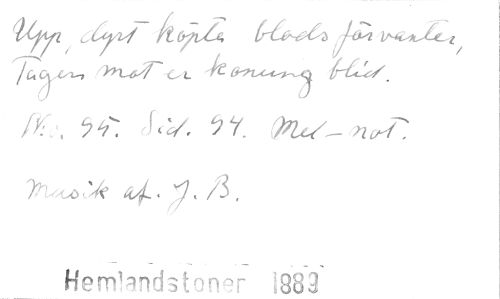 Upp, dyrt köpta blods förvanter,
Tagen mot er konung blid.
No. 95. Sid. 94. Mel-not.
Musik af. J. B.
Hemlandstoner 1889